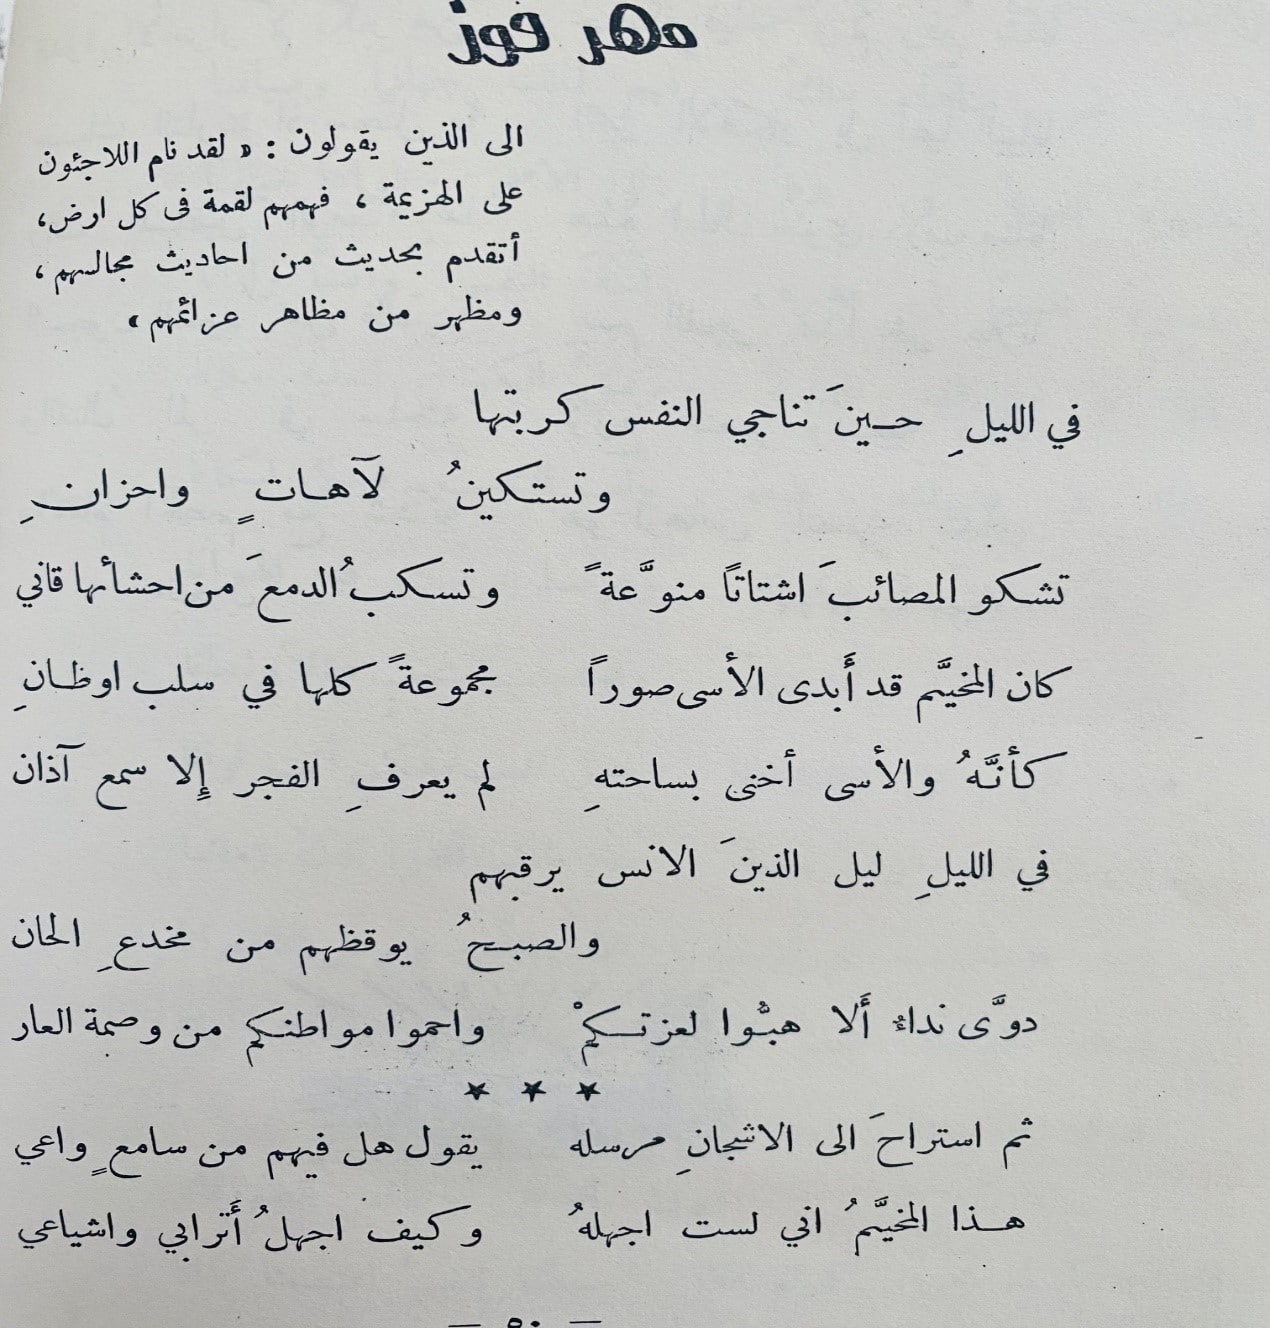 مهر فوز
الى الذين يقولون : « لقد نام اللاجئون
على الهزيمة ، فهمهم لقمة فى كل ارض،
أتقدم بحديث من احاديث مجالسهم ،
ومظهر من مظاهر عزائمهم »
في الليلِ حـينَ تناجي النفس كربتها
وتستكينُ لآهـاتٍ واحزانِ
تشكو المصائبَ اشتاتاً منوَّعةً وتسكبُ الدمعَ من احشائها قاني
كان المخيَّم قد أَبدى الأسى صوراً مجموعةً كلها في سلب اوظـانِ
كأنَّهُ والأسى أخنى بساحتهِ لم يعرفِ الفجر إِلا سمع آذان
في الليلِ ليل الذينَ الانس يرقبهم
والصبـحُ يوقظهم من مخدعِ الحان
دوَّى نداءٌ أَلا هبُّوا لعزتـكمْ واحموا مواطنكم من وصمة العار
★ ★ ★
ثم استراحَ الى الاشجانِ مرسله يقول هل فيهم من سامعٍ واعي
هـذا المخيَّمُ اني لست اجهلهُ وكيف اجهلُ أَترابي واشياعي
— ٩٠ —